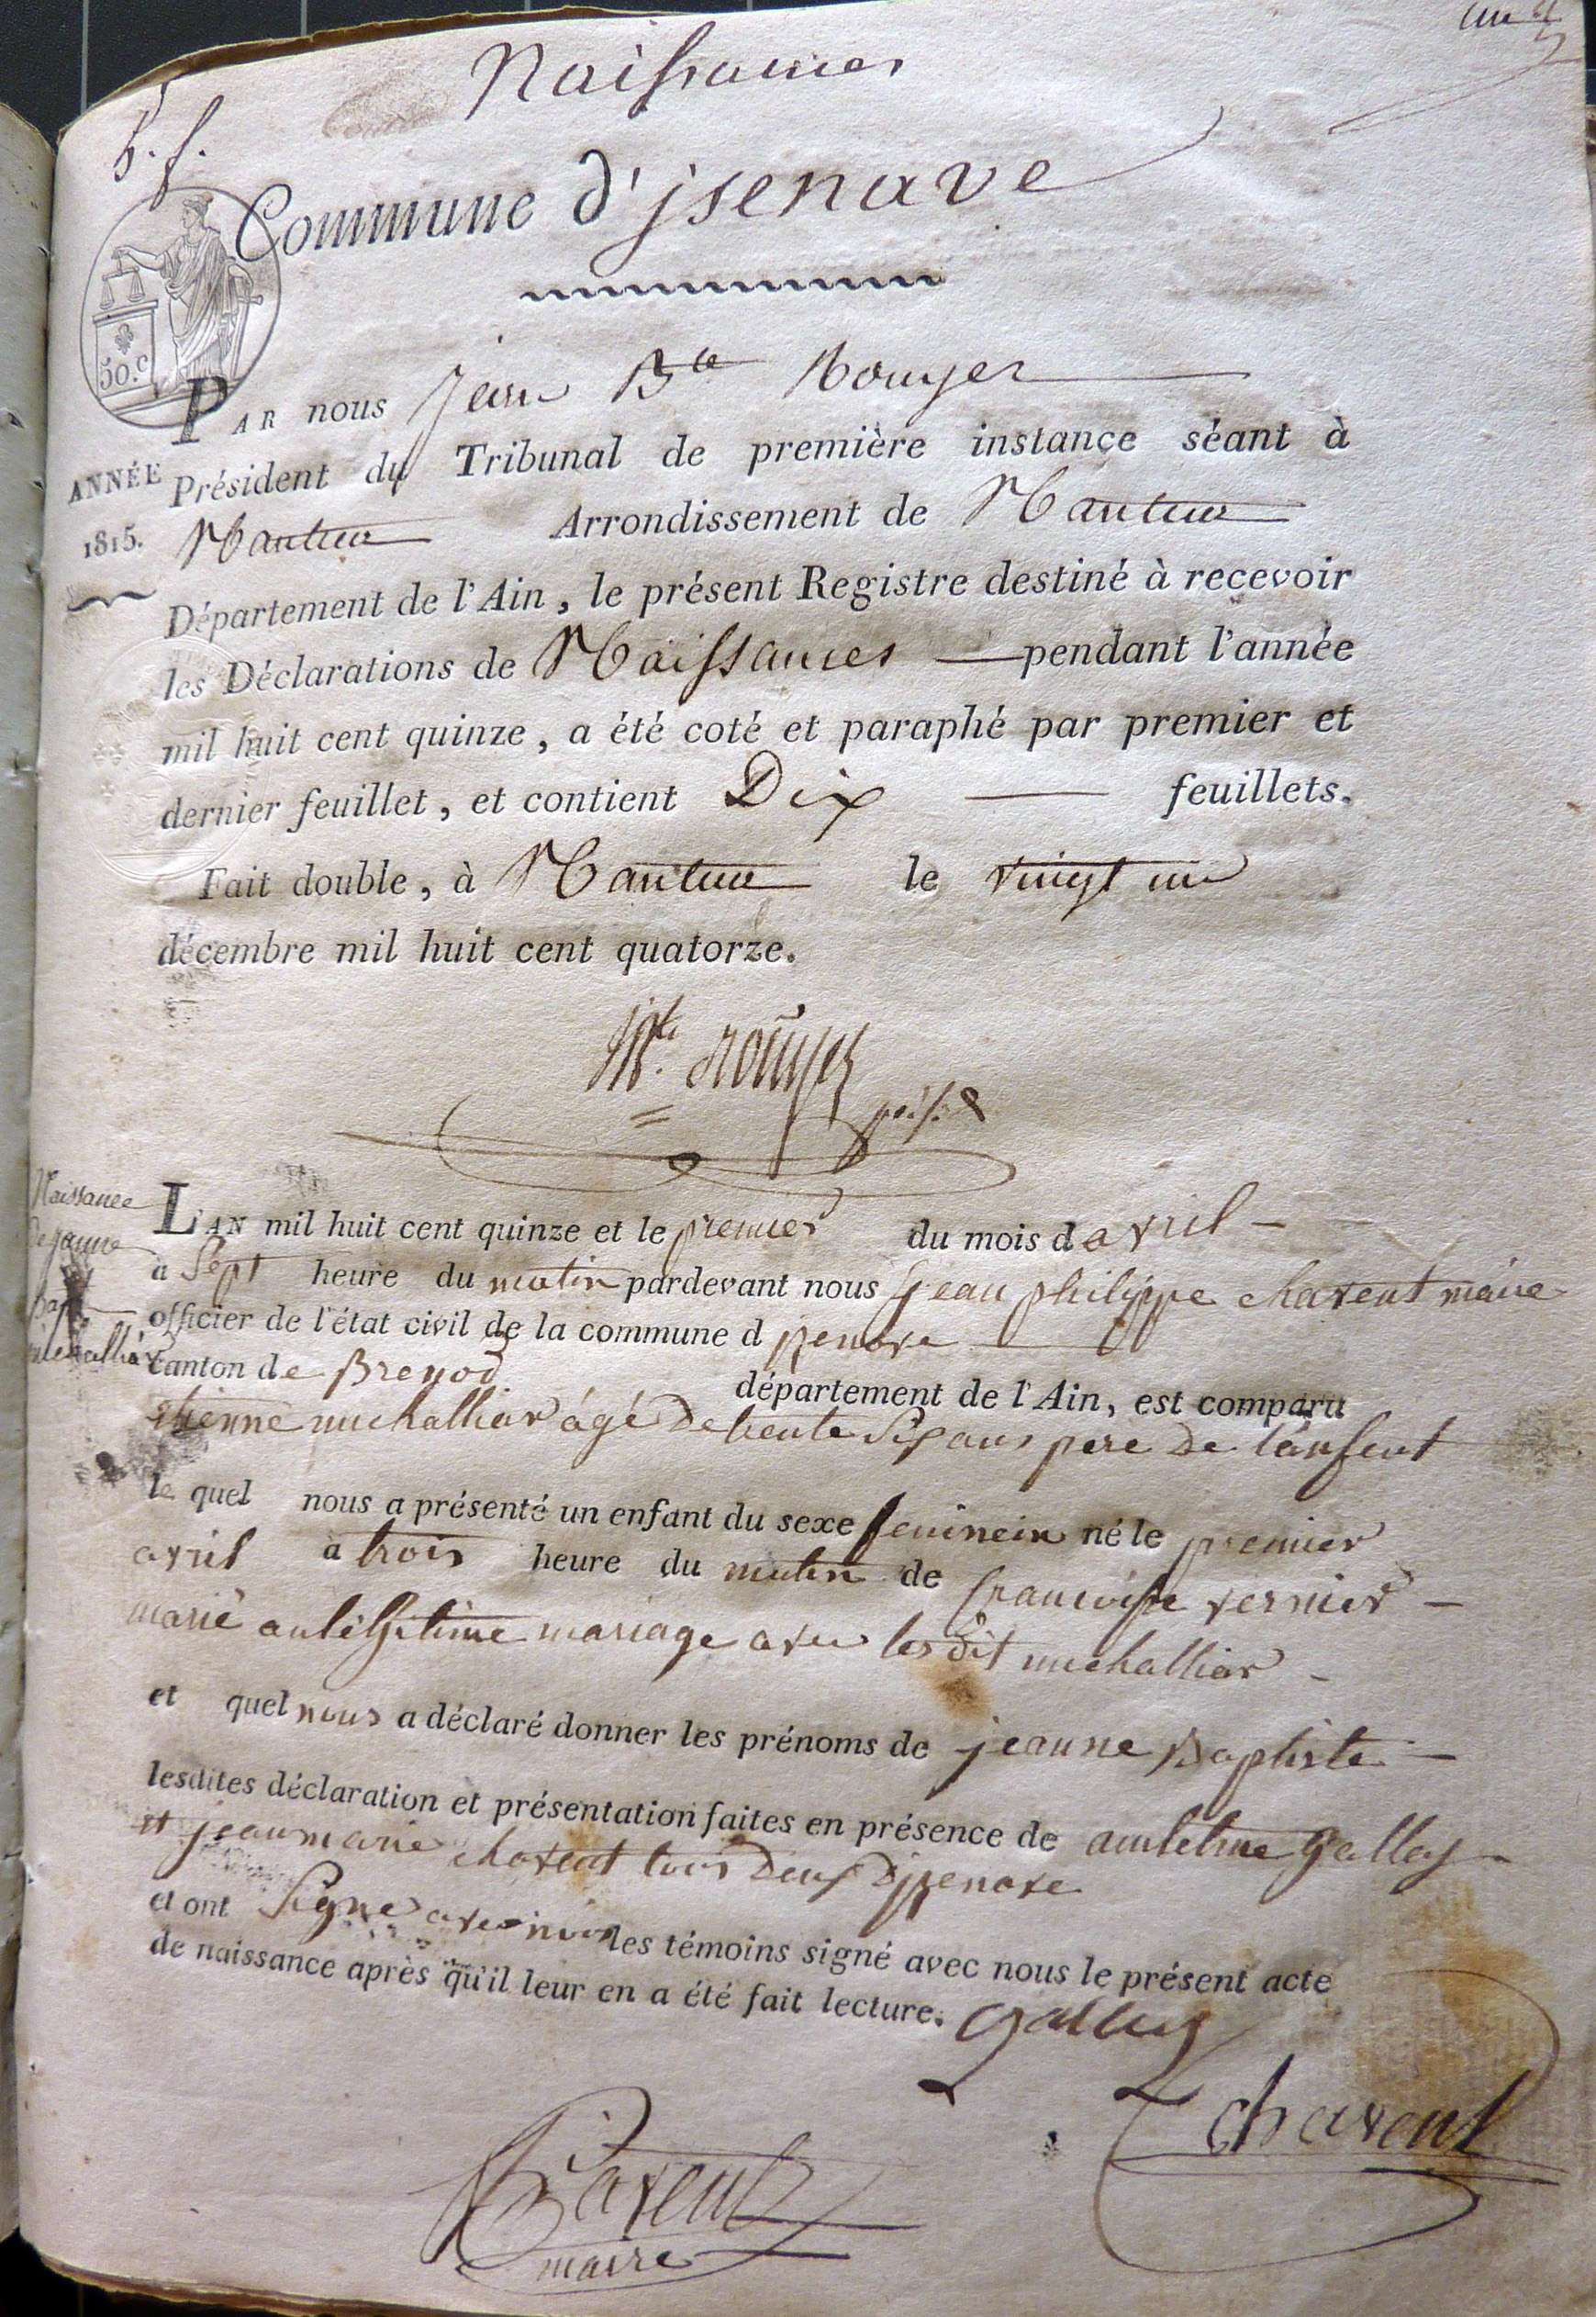 un
Naissances
5. f.
Commune d'jsenave
50.c
PAR nous Jean Bte Rouyer
ANNÉE
1815.
Président du Tribunal de première instance séant à
Nantua Arrondissement de Nantua
Département de l'Ain, le présent Registre destiné à recevoir
les Déclarations de Naissances pendant l'année
mil huit cent quinze, a été coté et paraphé par premier et
dernier feuillet, et contient Dix feuillets.
Fait double, à Nantua le vingt un
décembre mil huit cent quatorze.
Rouyer
Naissance
de janne
Bap
michallia
L'AN mil huit cent quinze et le premier du mois d avril
à Sept heure du matin pardevant nous jean philippe chavent maire
officier de l'état civil de la commune d jzenave
Canton de Brenod département de l'Ain, est comparu
etienne michalliar âgé de trente Six ans pere de l'anfent
le quel nous a présenté un enfant du sexe feminein né le premier
avril à trois heure du matin de francoise vernier
marié anlésitime mariage avec les dit michalliar
et quel nous a déclaré donner les prénoms de jeanne Baptiste
lesdites déclaration et présentation faites en présence de antelme Gallay
et jean marie chavent tous deux d jzenave
et ont Signé avec nous les témoins signé avec nous le présent acte
de naissance après qu'il leur en a été fait lecture. Gallay
chavent
Chavent
maire